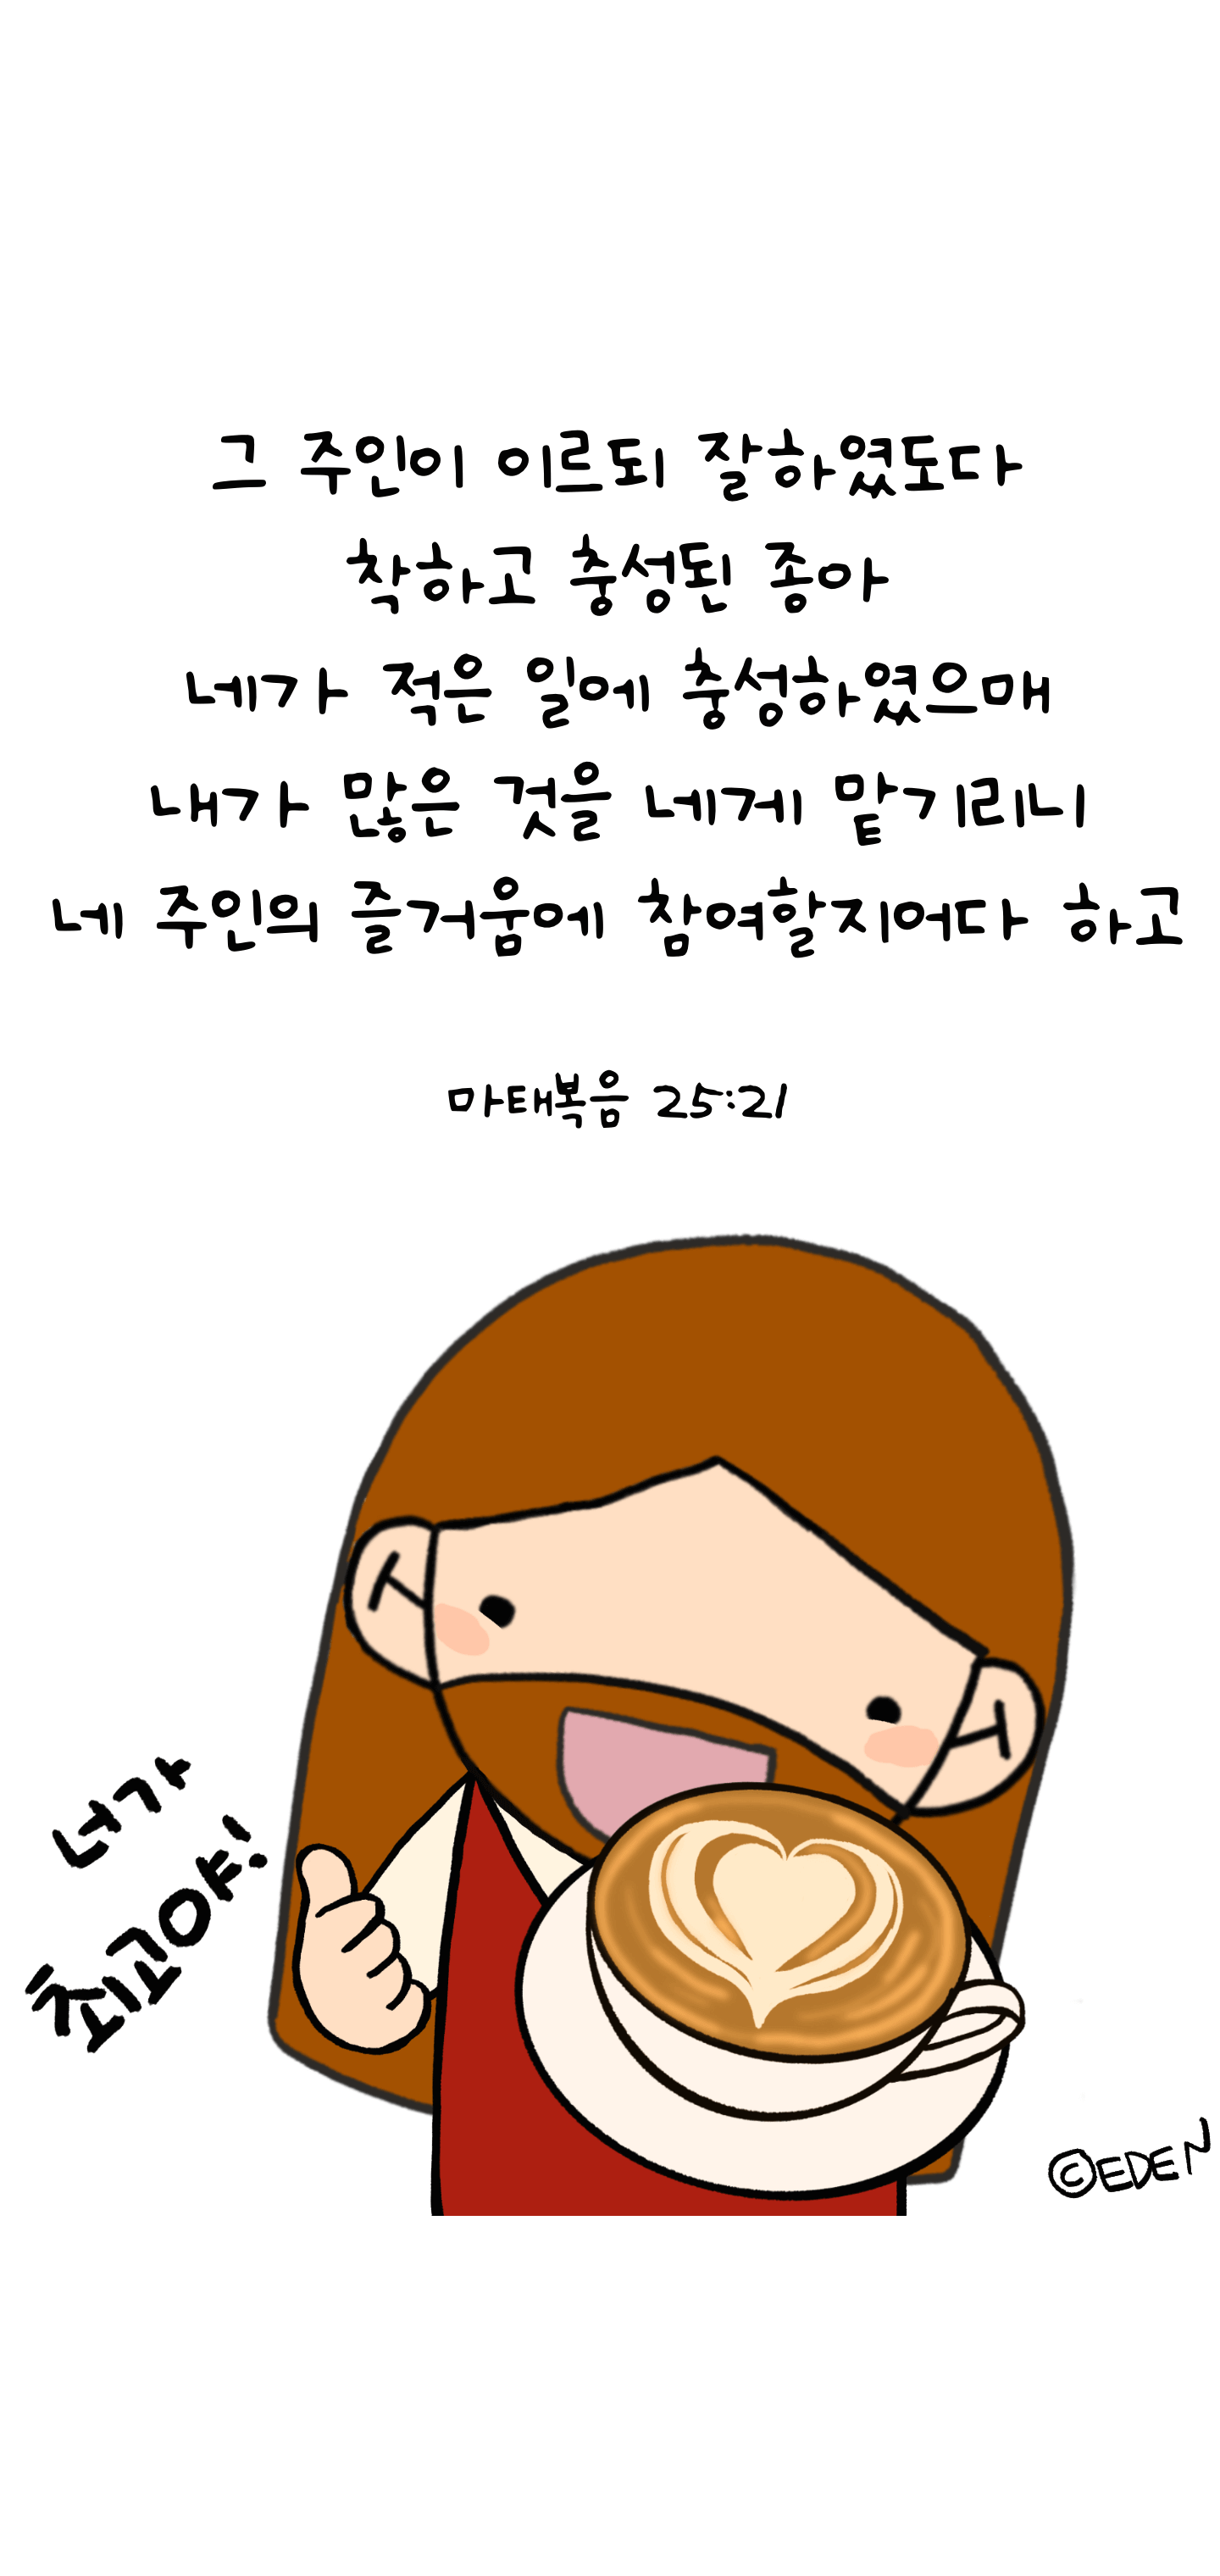 그 주인이 이르되 잘하였도다
착하고 충성된 종아
네가 적은 일에 충성하였으매
내가 많은 것을 네게 맡기리니
네 주인의 즐거움에 참여할지어다 하고
마태복음 25:21
너가
최고야!
©EDEN